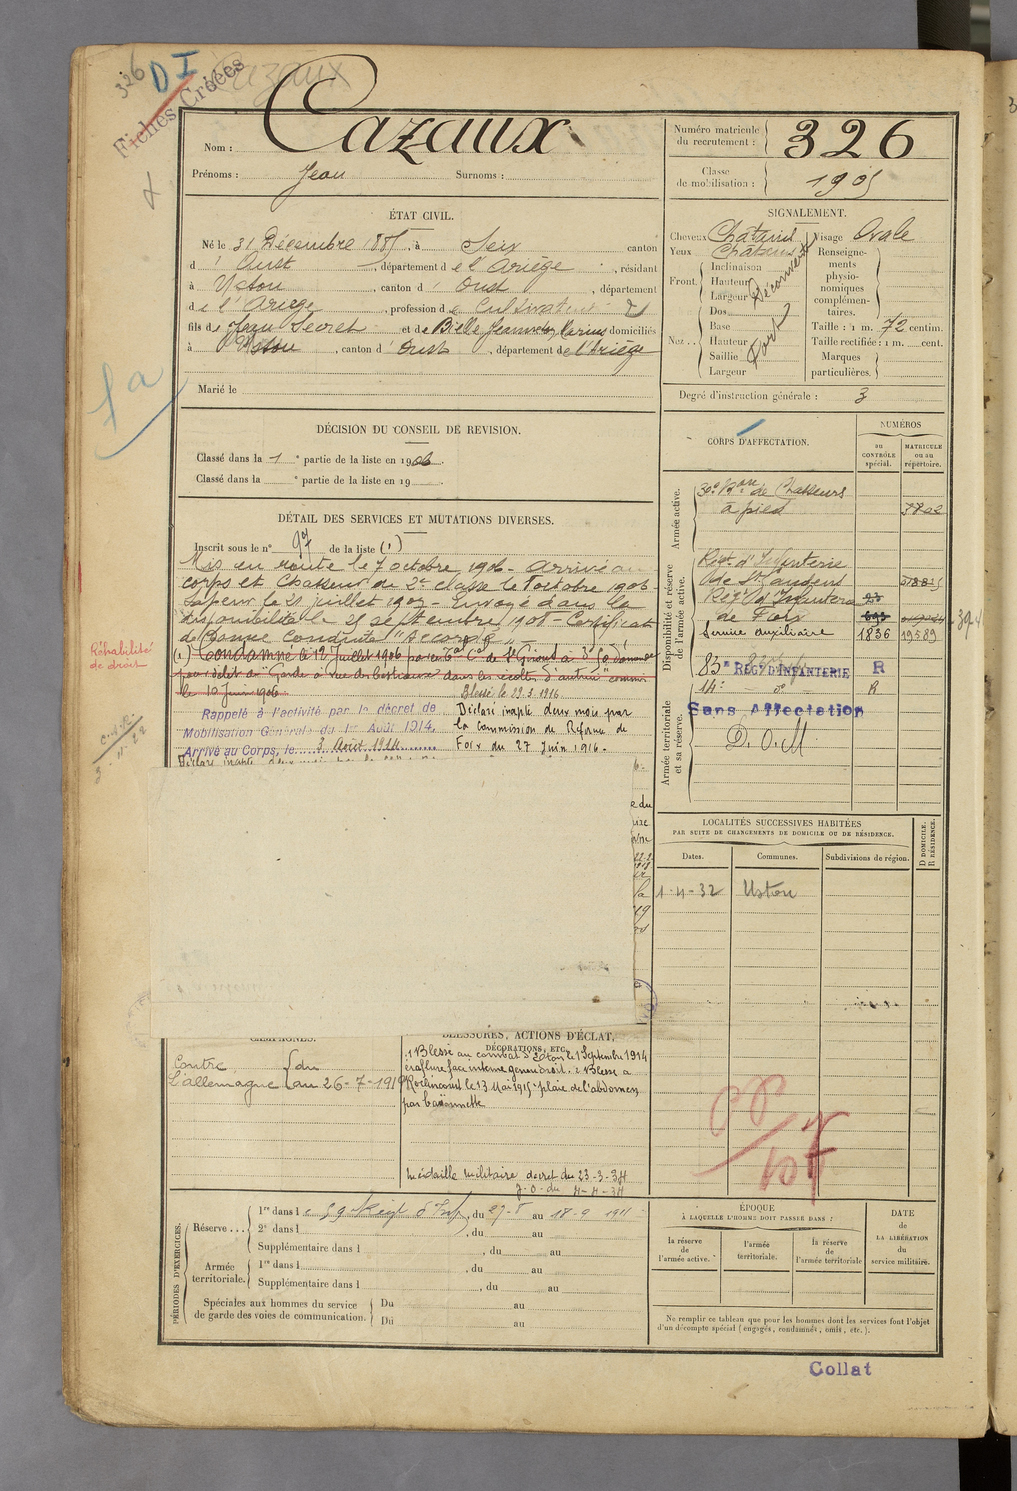 326
D I
Fiches Créées
Cazaux
Nom : Cazaux
Prénoms : Jean Surnoms :
Numéro matricule du recrutement : 326
Classe de mobilisation : 1905
ÉTAT CIVIL.
Né le 31 Décembre 1885, à Seix canton
d'Oust, département de l'Ariège, résidant
à Ustou, canton d'Oust, département
de l'Ariège, profession de Cultivateur
fils de Jean Secret et de Bielle Jeanne Marie domiciliés
à Ustou, canton d'Oust, département de l'Ariège
Marié le
SIGNALEMENT.
Cheveux Châtains Visage Ovale
Yeux Châtains
Front. Inclinaison Hauteur Largeur Découvert
Nez.. Dos Base Hauteur Saillie Largeur Fort
Renseignements physionomiques complémentaires.
Taille : 1 m. 72 centim.
Taille rectifiée : 1 m. cent.
Marques particulières.
Degré d'instruction générale : 3
DÉCISION DU CONSEIL DE REVISION.
Classé dans la 1 e partie de la liste en 1906.
Classé dans la e partie de la liste en 19
DÉTAIL DES SERVICES ET MUTATIONS DIVERSES.
Inscrit sous le n° 97 de la liste (1)
Mis en route le 7 octobre 1906 - Arrivé au
corps et Chasseur de 2e classe le 7 octobre 1906
Sapeur le 21 juillet 1907 - Envoyé dans la
disponibilité le 25 septembre 1908 - Certificat
de Bonne Conduite "Accordé"
(1) Condamné le 12 Juillet 1906 par
pour délit de "Garde à vue de bestiaux dans les récoltes d'autrui" commis
le 10 Juin 1906
Réhabilité
de droit
Blessé le 29.3.1916.
Rappelé à l'activité par le décret de
Mobilisation Générale du 1er Août 1914.
Arrivé au Corps, le 3 Août 1914
Déclaré inapte deux mois par
la commission de Réforme de
Foix du 27 Juin 1916.
CORPS D'AFFECTATION.
NUMÉROS
au CONTRÔLE spécial.
MATRICULE ou au répertoire.
Armée active.
30e Bon de Chasseurs
à pied
Disponibilité et réserve de l'armée active.
Régt d'Infanterie
de St Gaudens
Régt d'Infanterie
de Foix
Service Auxiliaire 1836 19589
83e REGt D'INFANTERIE R
14e d° R
Armée territoriale et sa réserve.
Sans Affectation
D.O.M
LOCALITÉS SUCCESSIVES HABITÉES
PAR SUITE DE CHANGEMENTS DE DOMICILE OU DE RÉSIDENCE.
Dates. Communes. Subdivisions de région. D DOMICILE. R RÉSIDENCE.
1-4-32 Ustou
CAMPAGNES.
Contre
L'allemagne
du
au 26-7-1919
BLESSURES, ACTIONS D'ÉCLAT,
DÉCORATIONS, ETC.
1 Blessé au combat d' le 1 Septembre 1914
éraflure face interne genou droit. 2 Blessé a
Roclincourt le 13 Mai 1915 plaie de l'abdomen
par baïonnette
Médaille militaire décret du 23-3-34
J.O. du 4-4-34
PÉRIODES D'EXERCICES.
Réserve ... 1re dans l e 59 Régt d'Inf, du 27-8 au 18-9 1911
2e dans l , du au
Supplémentaire dans l , du au
Armée territoriale. 1re dans l , du au
Supplémentaire dans l , du au
Spéciales aux hommes du service
de garde des voies de communication. Du au
Du au
ÉPOQUE
À LAQUELLE L'HOMME DOIT PASSER DANS :
la réserve de l'armée active.
l'armée territoriale.
la réserve de l'armée territoriale
DATE de LA LIBÉRATION du service militaire.
Ne remplir ce tableau que pour les hommes dont les services font l'objet
d'un décompte spécial (engagés, condamnés, omis, etc.).
Collat